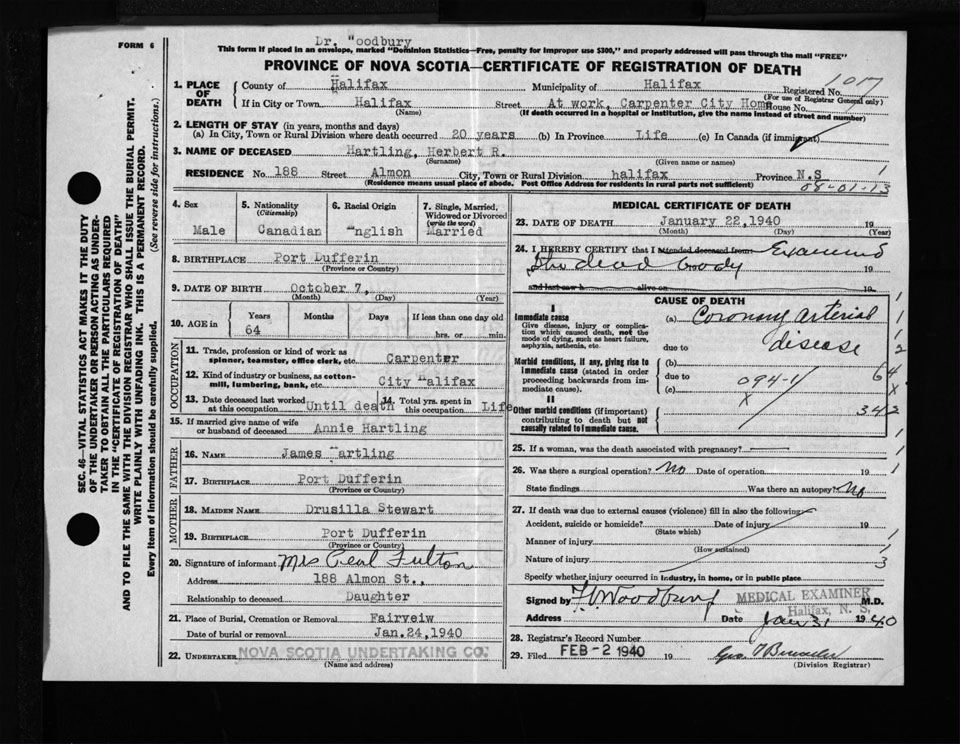 FORM 6
Dr. Woodbury
This form if placed in an envelope, marked "Dominion Statistics—Free, penalty for improper use $300," and properly addressed will pass through the mail "FREE"
PROVINCE OF NOVA SCOTIA—CERTIFICATE OF REGISTRATION OF DEATH
SEC. 46—VITAL STATISTICS ACT MAKES IT THE DUTY
OF THE UNDERTAKER OR PERSON ACTING AS UNDER-
TAKER TO OBTAIN ALL THE PARTICULARS REQUIRED
IN THE "CERTIFICATE OF REGISTRATION OF DEATH"
AND TO FILE THE SAME WITH THE DIVISION REGISTRAR WHO SHALL ISSUE THE BURIAL PERMIT.
WRITE PLAINLY WITH UNFADING INK. THIS IS A PERMANENT RECORD.
Every item of information should be carefully supplied. (See reverse side for instructions.)
1. PLACE OF DEATH
County of Halifax Municipality of Halifax Registered No. 1017
(For use of Registrar General only)
If in City or Town Halifax Street At work, Carpenter City Home House No.
(Name) (If death occurred in a hospital or institution, give the name instead of street and number)
2. LENGTH OF STAY (in years, months and days)
(a) In City, Town or Rural Division where death occurred 20 years (b) In Province Life (c) In Canada (if immigrant)
3. NAME OF DECEASED Hartling, Herbert R.
(Surname) (Given name or names)
RESIDENCE No. 188 Street Almon City, Town or Rural Division halifax Province N.S
(Residence means usual place of abode. Post Office Address for residents in rural parts not sufficient) 08-01-13
4. Sex Male
5. Nationality (Citizenship) Canadian
6. Racial Origin "nglish
7. Single, Married, Widowed or Divorced (write the word) Married
8. BIRTHPLACE Port Dufferin
(Province or Country)
9. DATE OF BIRTH October 7,
(Month) (Day) (Year)
10. AGE in Years 64 Months Days If less than one day old
hrs. or min.
OCCUPATION
11. Trade, profession or kind of work as spinner, teamster, office clerk, etc. Carpenter
12. Kind of industry or business, as cotton-mill, lumbering, bank, etc. City "alifax
13. Date deceased last worked at this occupation Until death 14. Total yrs. spent in this occupation Life
15. If married give name of wife or husband of deceased Annie Hartling
FATHER
16. NAME James "artling
17. BIRTHPLACE Port Dufferin
(Province or Country)
MOTHER
18. MAIDEN NAME Drusilla Stewart
19. BIRTHPLACE Port Dufferin
(Province or Country)
20. Signature of informant Mrs Pearl Fulton
Address 188 Almon St.,
Relationship to deceased Daughter
21. Place of Burial, Cremation or Removal Fairveiw
Date of burial or removal Jan.24,1940
22. UNDERTAKER NOVA SCOTIA UNDERTAKING CO.
(Name and address)
MEDICAL CERTIFICATE OF DEATH
23. DATE OF DEATH January 22,1940 19
(Month) (Day) (Year)
24. I HEREBY CERTIFY that I attended deceased from Examined
the dead body 19
and last saw h alive on 19
CAUSE OF DEATH
I
Immediate cause
Give disease, injury or complication which caused death, not the mode of dying, such as heart failure, asphyxia, asthenia, etc.
(a) Coronary arterial
due to disease
Morbid conditions, if any, giving rise to immediate cause (stated in order proceeding backwards from immediate cause).
(b) 64
due to 094-1
(c) x x
II
Other morbid conditions (if important) contributing to death but not causally related to immediate cause. 342
25. If a woman, was the death associated with pregnancy?
26. Was there a surgical operation? No Date of operation 19
State findings Was there an autopsy? No
27. If death was due to external causes (violence) fill in also the following:
Accident, suicide or homicide? Date of injury 19
(State which)
Manner of injury
(How sustained)
Nature of injury 3
Specify whether injury occurred in industry, in home, or in public place
Signed by Woodbury MEDICAL EXAMINER M.D.
Halifax, N. S.
Address Date Jan 31 1940
28. Registrar's Record Number
29. Filed FEB - 2 1940 19
(Division Registrar)